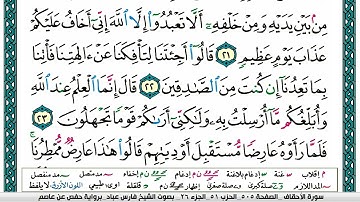 مِنۢ بَيْنِ يَدَيْهِ وَمِنْ خَلْفِهِۦٓ أَلَّا تَعْبُدُوٓا۟ إِلَّا ٱللَّهَ إِنِّىٓ أَخَافُ عَلَيْكُمْ
عَذَابَ يَوْمٍ عَظِيمٍ ٢١ قَالُوٓا۟ أَجِئْتَنَا لِتَأْفِكَنَا عَنْ ءَالِهَتِنَا فَأْتِنَا
بِمَا تَعِدُنَآ إِن كُنتَ مِنَ ٱلصَّـٰدِقِينَ ٢٢ قَالَ إِنَّمَا ٱلْعِلْمُ عِندَ ٱللَّهِ
وَأُبَلِّغُكُم مَّآ أُرْسِلْتُ بِهِۦ وَلَـٰكِنِّىٓ أَرَىٰكُمْ قَوْمًا تَجْهَلُونَ ٢٣
فَلَمَّا رَأَوْهُ عَارِضًا مُّسْتَقْبِلَ أَوْدِيَتِهِمْ قَالُوا۟ هَـٰذَا عَارِضٌ مُّمْطِرُنَا
سورة الأحقاف الصفحة ٥٠٥ الجزء ٢٦ بصوت الشيخ فارس عباد برواية حفص عن عاصم